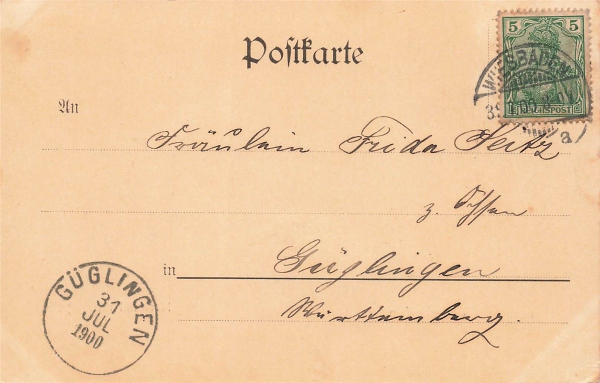 Postkarte
5 5
REICHSPOST
WIESBADEN
a
An
Fräulein Frida Seitz
z. Ochsen
in Güglingen
Württemberg.
GÜGLINGEN
31
JUL
1900